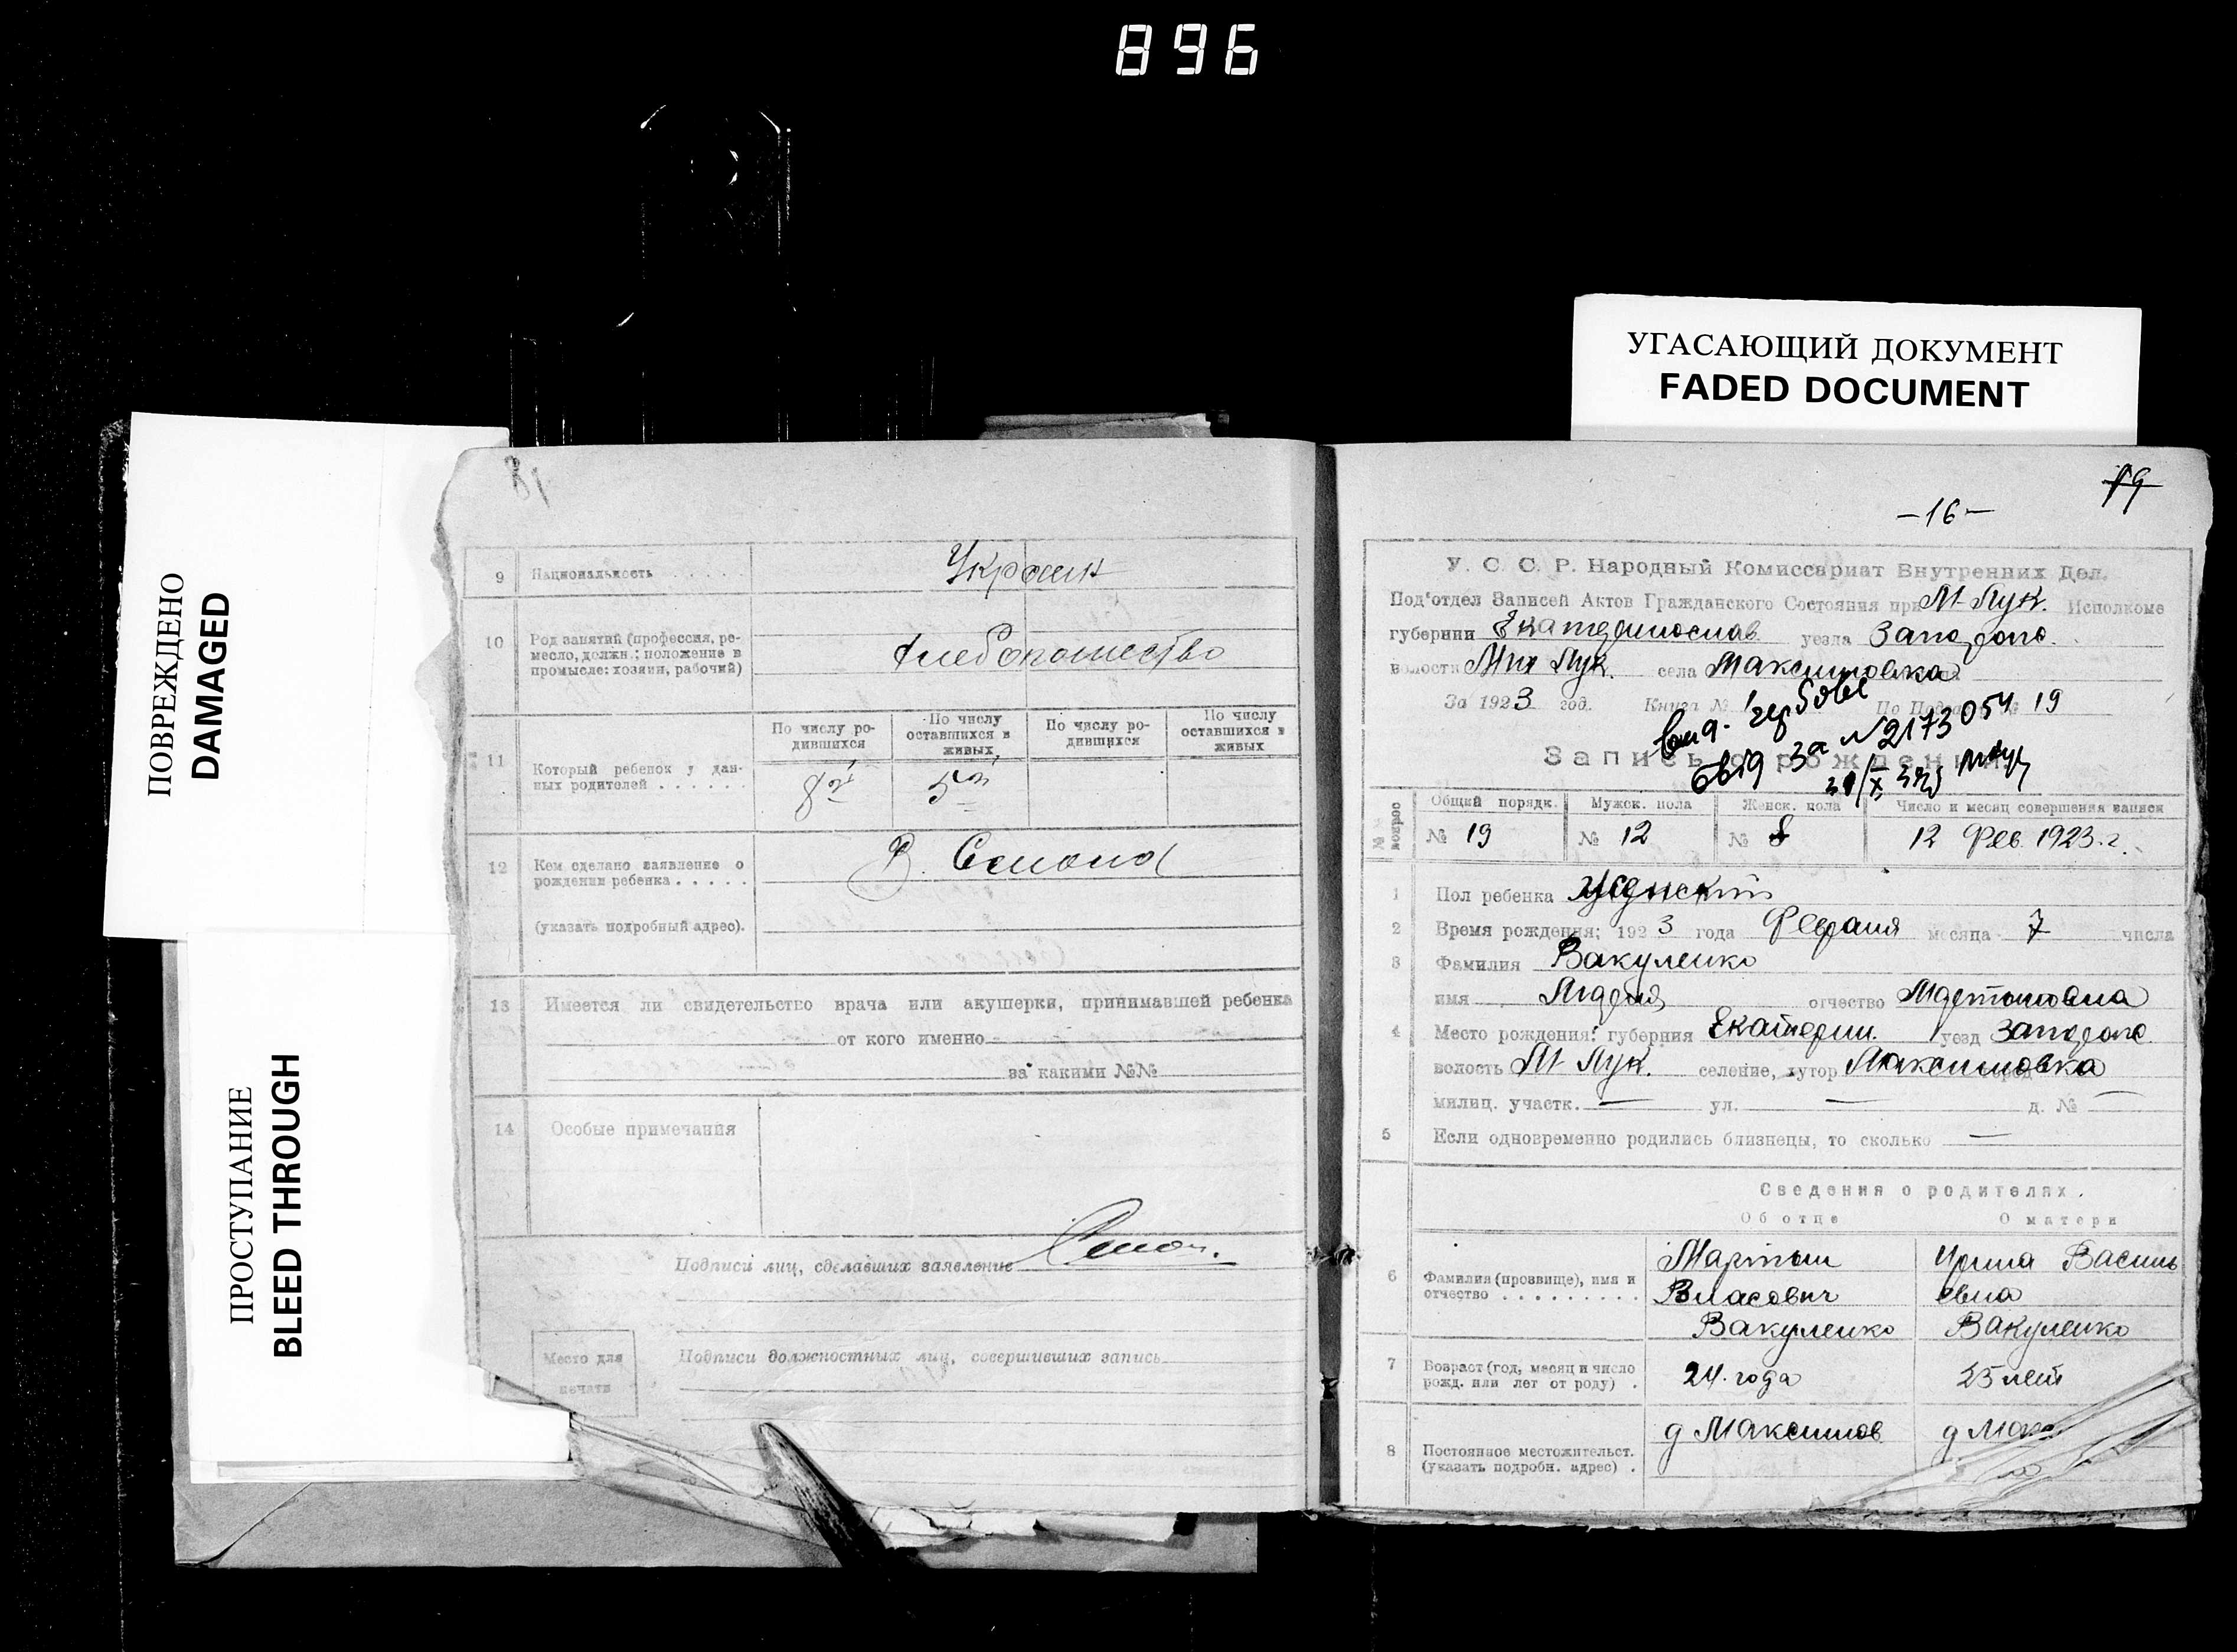 896
УГАСАЮЩИЙ ДОКУМЕНТ
FADED DOCUMENT
ПОВРЕЖДЕНО
DAMAGED
ПРОСТУПАНИЕ
BLEED THROUGH
9 Национальность . . . . . Украин
10 Род занятий (профессия, ре-
месло, должн.; положение в
промысле: хозяин, рабочий)
Хлебопашество
По числу ро-
дившихся
По числу
оставшихся в
живых
По числу ро-
дившихся
По числу
оставшихся в
живых
11 Который ребенок у дан-
ных родителей . . . . . .
8й 5й
12 Кем сделано заявление о
рождении ребенка . . . . .
(указать подробный адрес).
13 Имеется ли свидетельство врача или акушерки, принимавшей ребенка
от кого именно
за какими №№
14 Особые примечания
Подписи лиц, сделавших заявление
Место для
печати
Подписи должностных лиц, совершивших запись
19
-16-
У. С. С. Р. Народный Комиссариат Внутренних Дел.
Под'отдел Записей Актов Гражданского Состояния при М-Лук. Исполкоме
губернии Екатеринослав уезда Запорож.
волости Мих Лук. села Максимовка
За 1923 год. Книга № 1 По № 19
№ 2173054
Запись о рождении
№№ вопрос
Общий порядк. Мужск. пола Женск. пола Число и месяц совершения записи
№ 19 № 12 № 8 12 Фев. 1923 г.
1 Пол ребенка Женский
2 Время рождения; 1923 года Февраля месяца 7 числа
3 Фамилия Вакуленко
имя Лидия отчество Мартыновна
4 Место рождения: губерния Екатерин. уезд Запорож.
волость М-Лук. селение, хутор Максимовка
милиц. участк. — ул. — д. № —
5 Если одновременно родились близнецы, то сколько —
Сведения о родителях.
Об отце О матери
6 Фамилия (прозвище), имя и
отчество . . . . . . . . .
Мартын
Власович
Вакуленко
Ирина Василь
евна
Вакуленко
7 Возраст (год, месяц и число
рожд. или лет от роду) .
24 года 25 лет
8 Постоянное местожительст.
(указать подробн. адрес) .
д Максимов д Макс